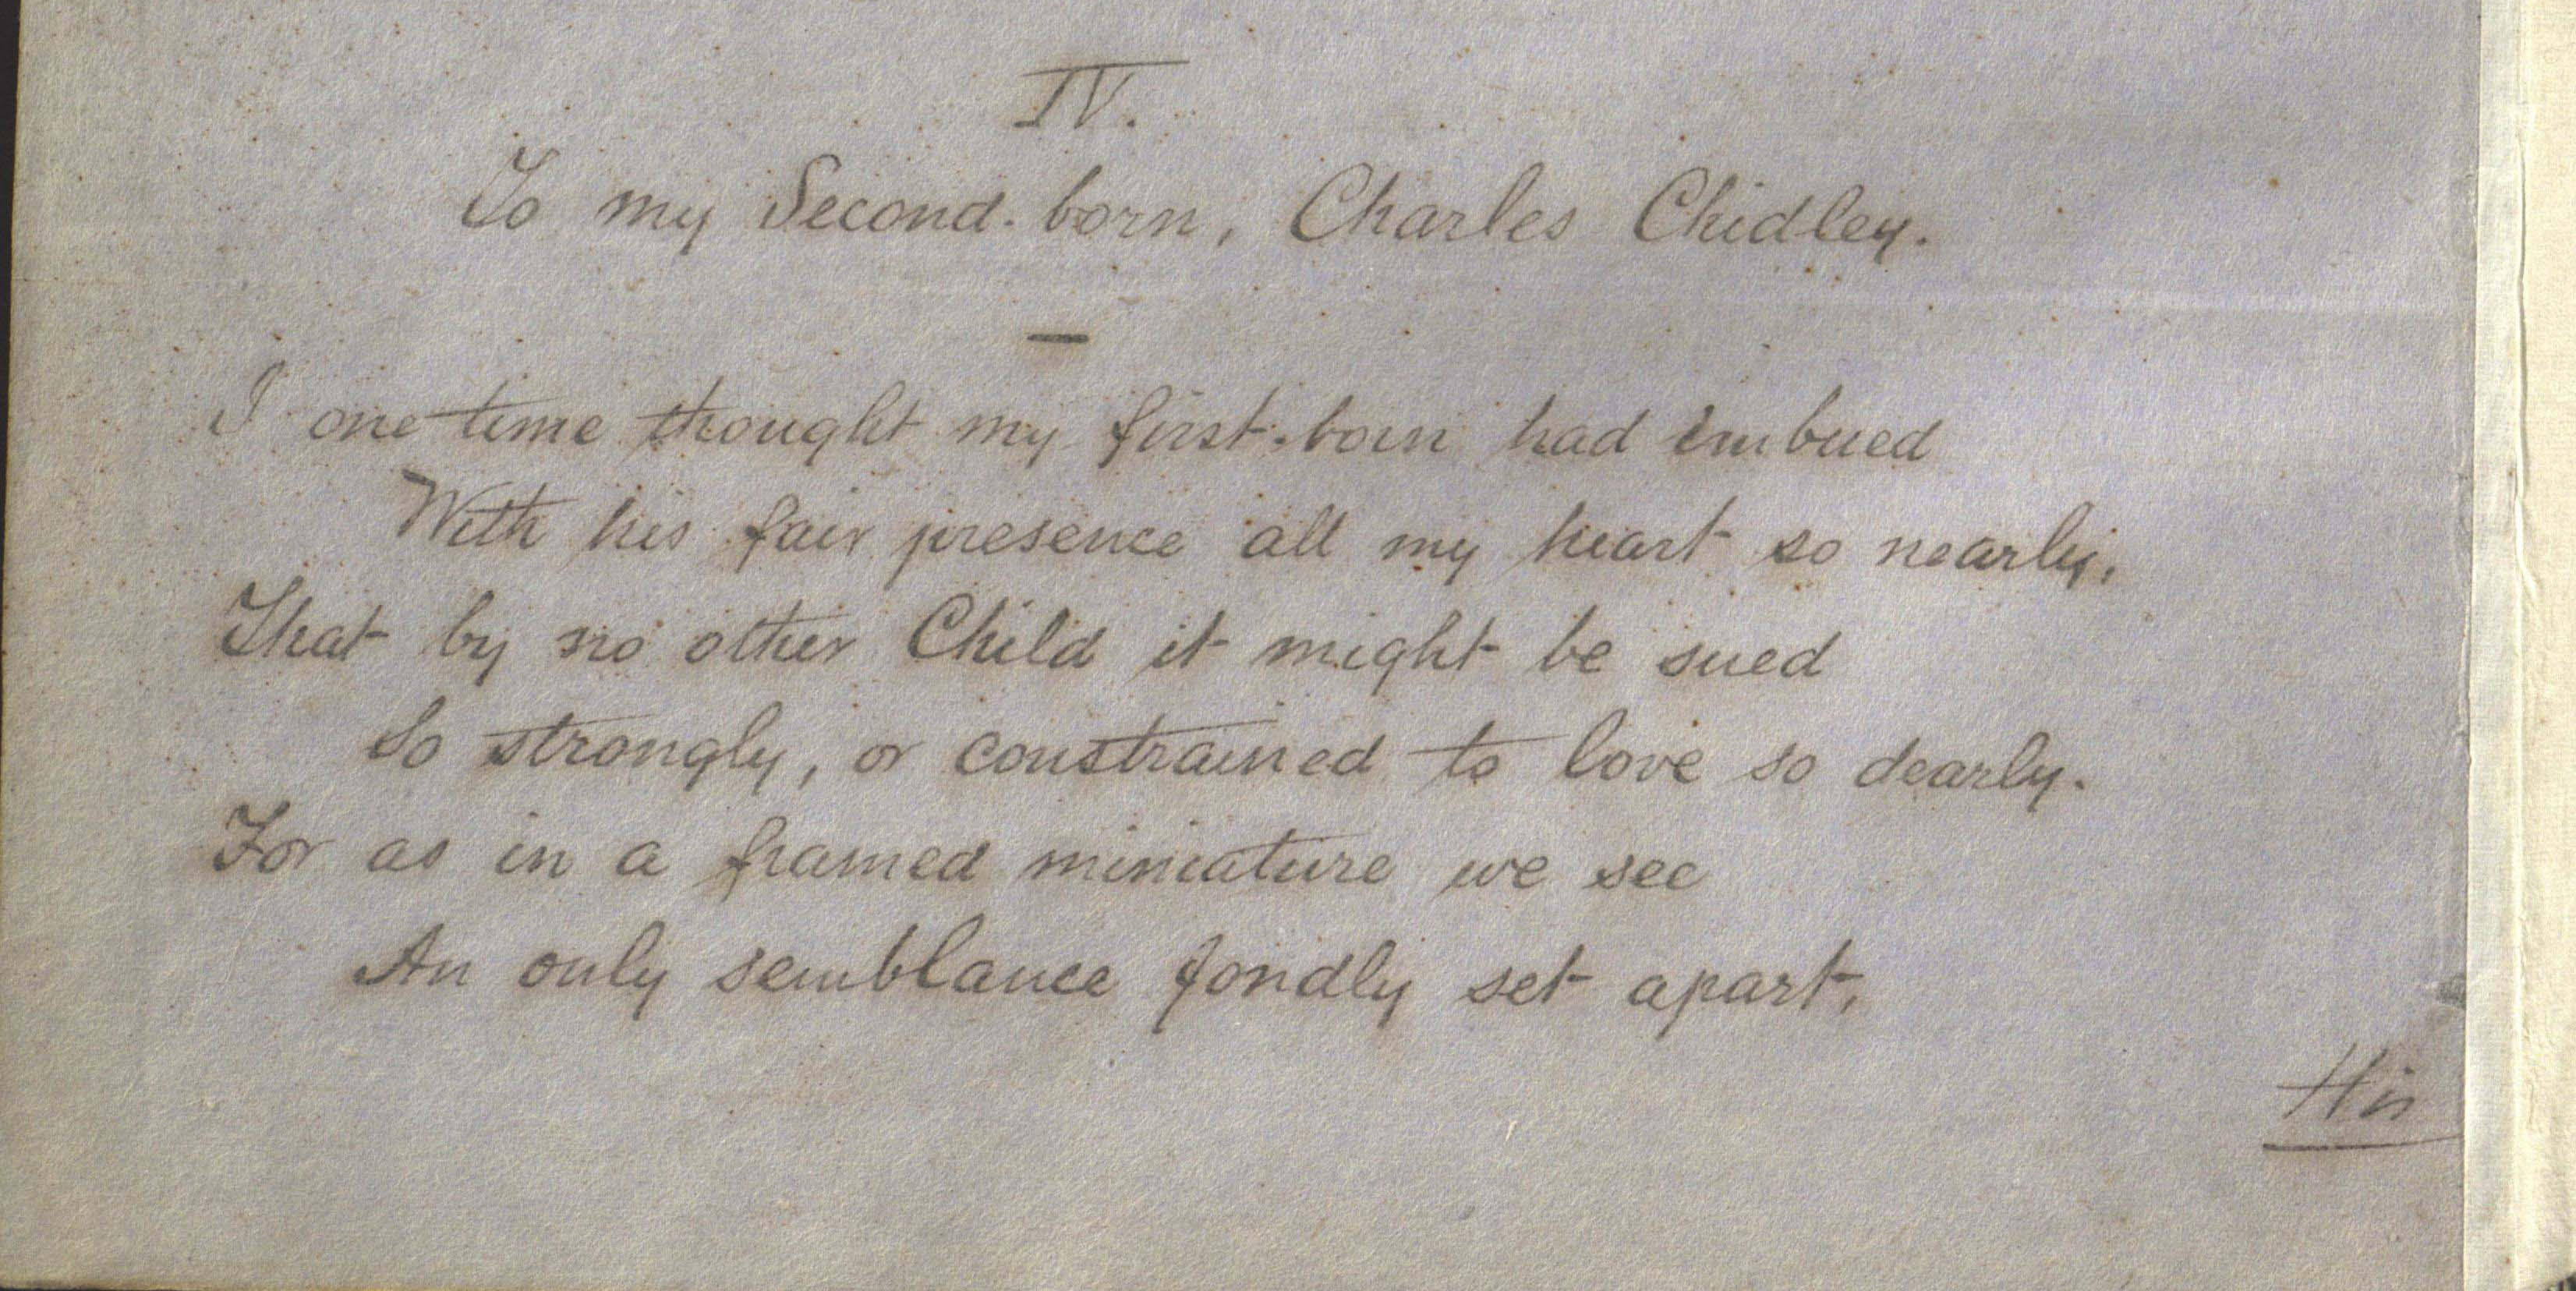 IV.
To my Second-born, Charles Chidley.
—
I one time thought my first-born had imbued
With his fair presence all my heart so nearly,
That by no other Child it might be sued
So strongly, or constrained to love so dearly.
For as in a framed miniature we see
An only semblance fondly set apart,
His